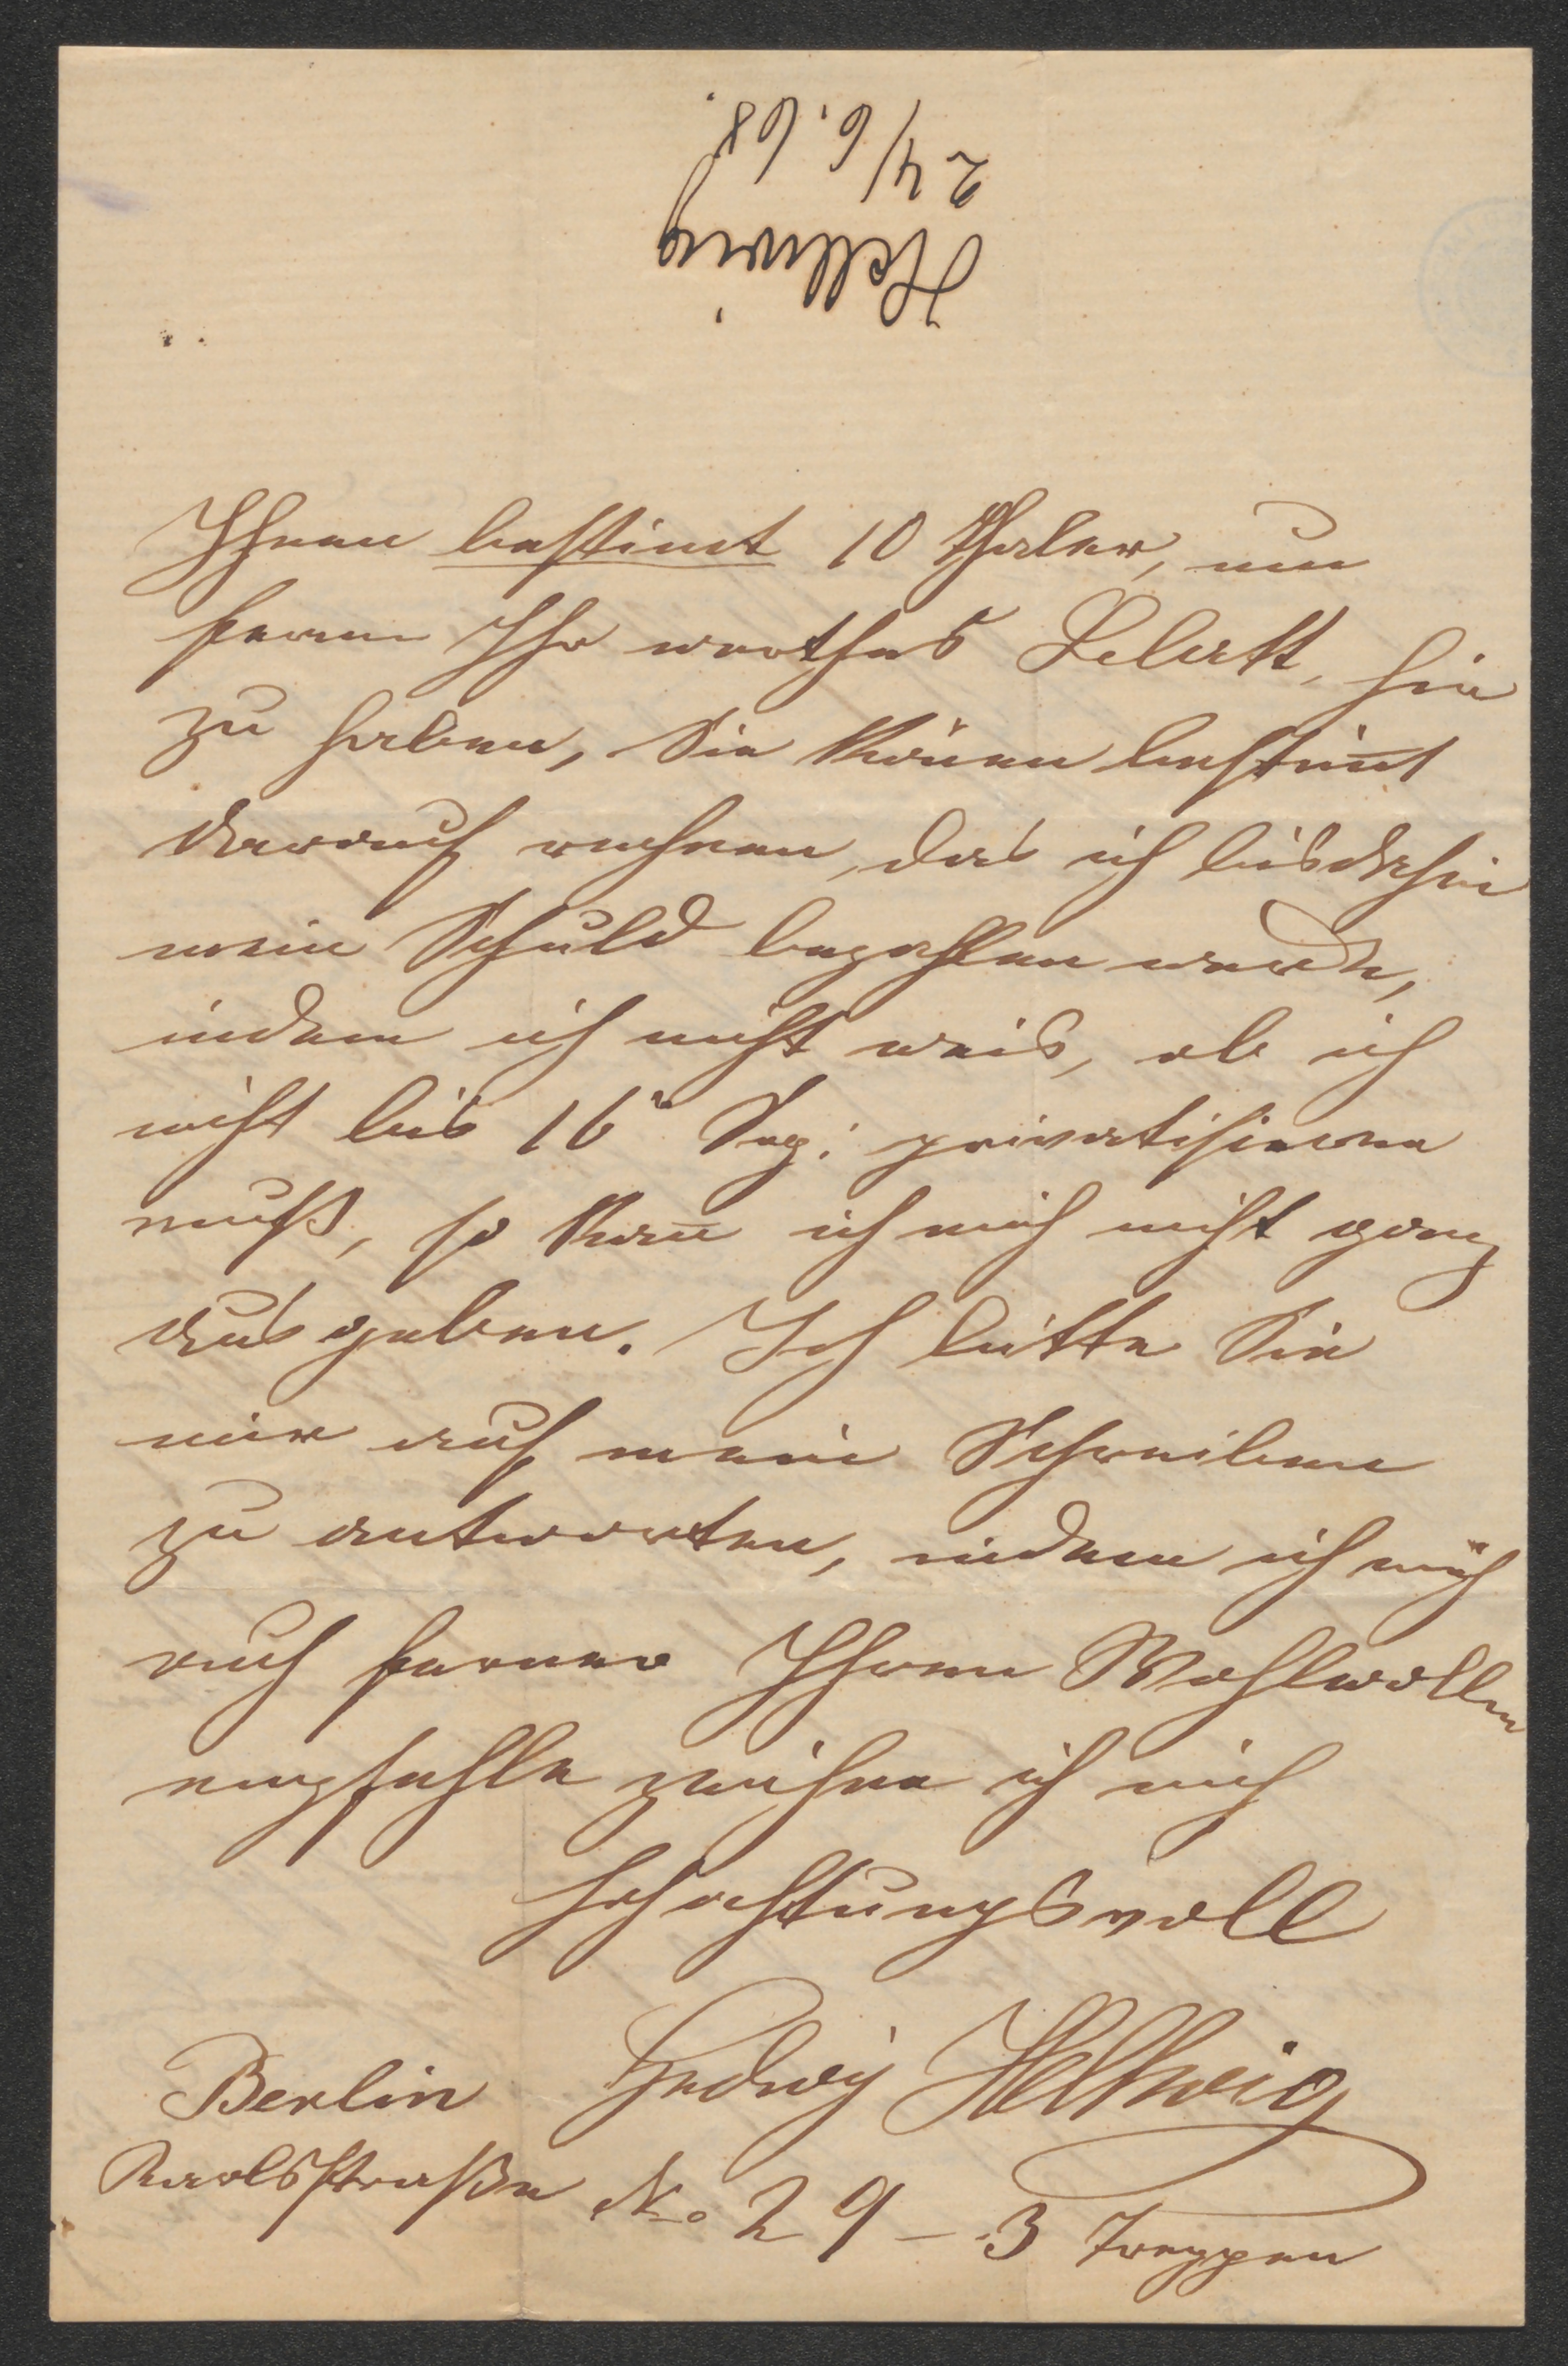 Hellwig
24/6. 68.
Ihnen bestimt 10 Thaler, um
ferner Ihr werthes Beblatt, hin
zu haben, Sie könen bestim̄t
darauf rechnen, das ich bisdahin
mein Schuld bezahlen werde,
indem ich nicht weis, ob ich
nicht bis 16 Sep: privatisieren
muß, so kan̄ ich mich nicht ganz
ausgeben. Ich bitte Sie
mir auf mein Schreiben
zu antworten, indem ich mich
auch ferner Ihrem Wohlwollen
empfehle zeichne ich mich
Hochachtungsvoll
Hedwig Hellwig
Berlin
Karlsstraße No 29 – 3 Treppen